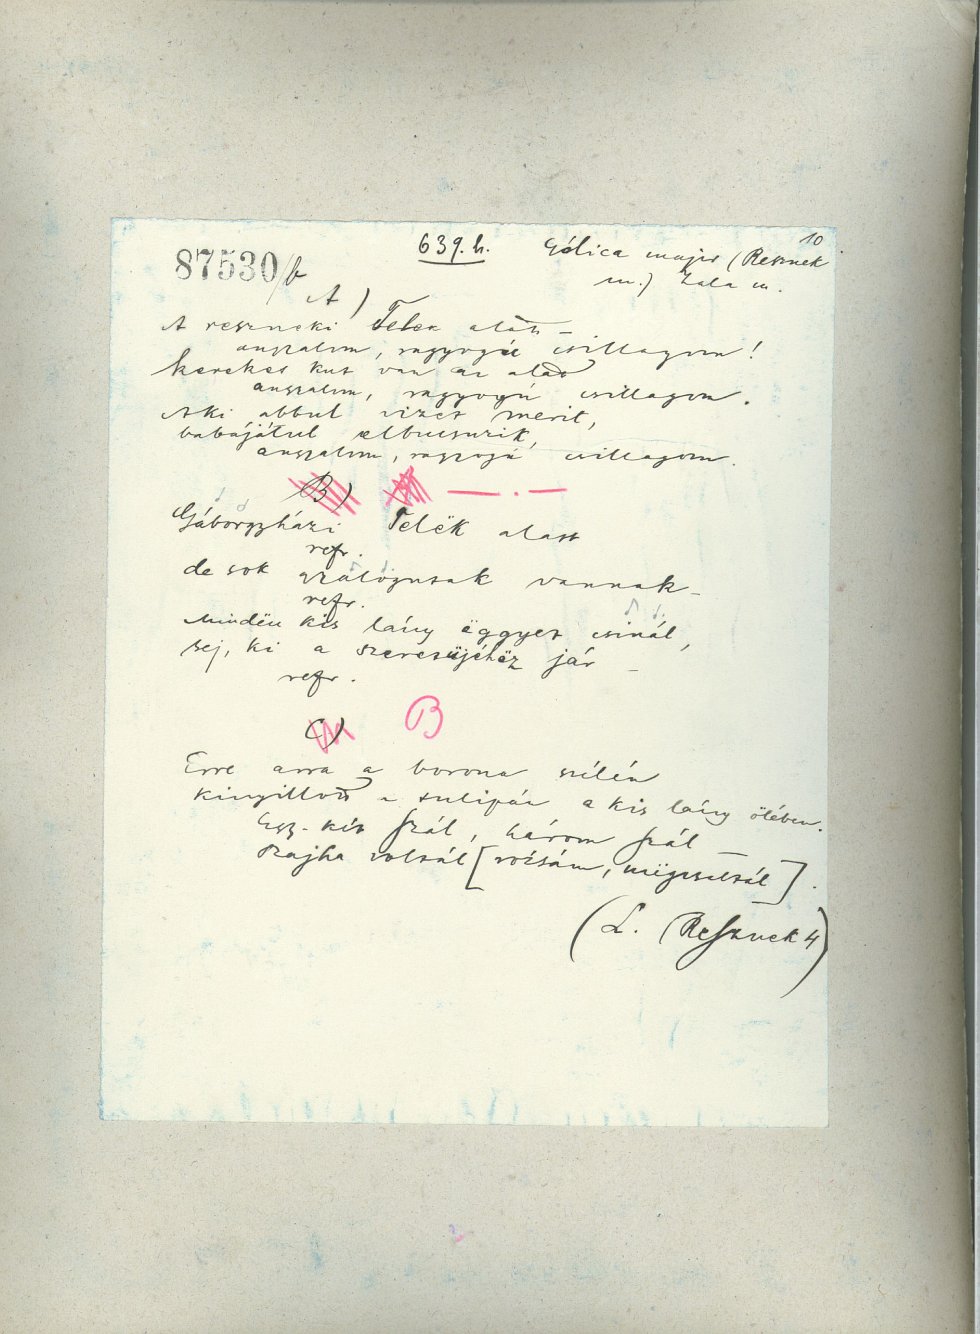 10
87530/b
639. h.
Gólica major (Resznek
m.) Zala m.
A)
A reszneki Telek alatt –
angyalom, ragyogó csillagom!
kerekes kut van az alatt
angyalom, ragyogó csillagom.
Aki abbul vizet merit,
babájátul elbucsuzik,
angyalom, ragyogó csillagom.
B)
Gáborgyházi Telëk alatt
refr.
de sok zálogutsak vannak –
refr.
Mindën kis lány ëggyet csinál,
sej, ki a szeretőjéhëz jár –
refr.
C) B
Erre arra a borona szélén
Kinyillott a tulipán a kis lány ölében.
Egy-két szál, három szál –
Rajta voltál [rózsám, mëgcsaltál].
(L. (Resznek 4)